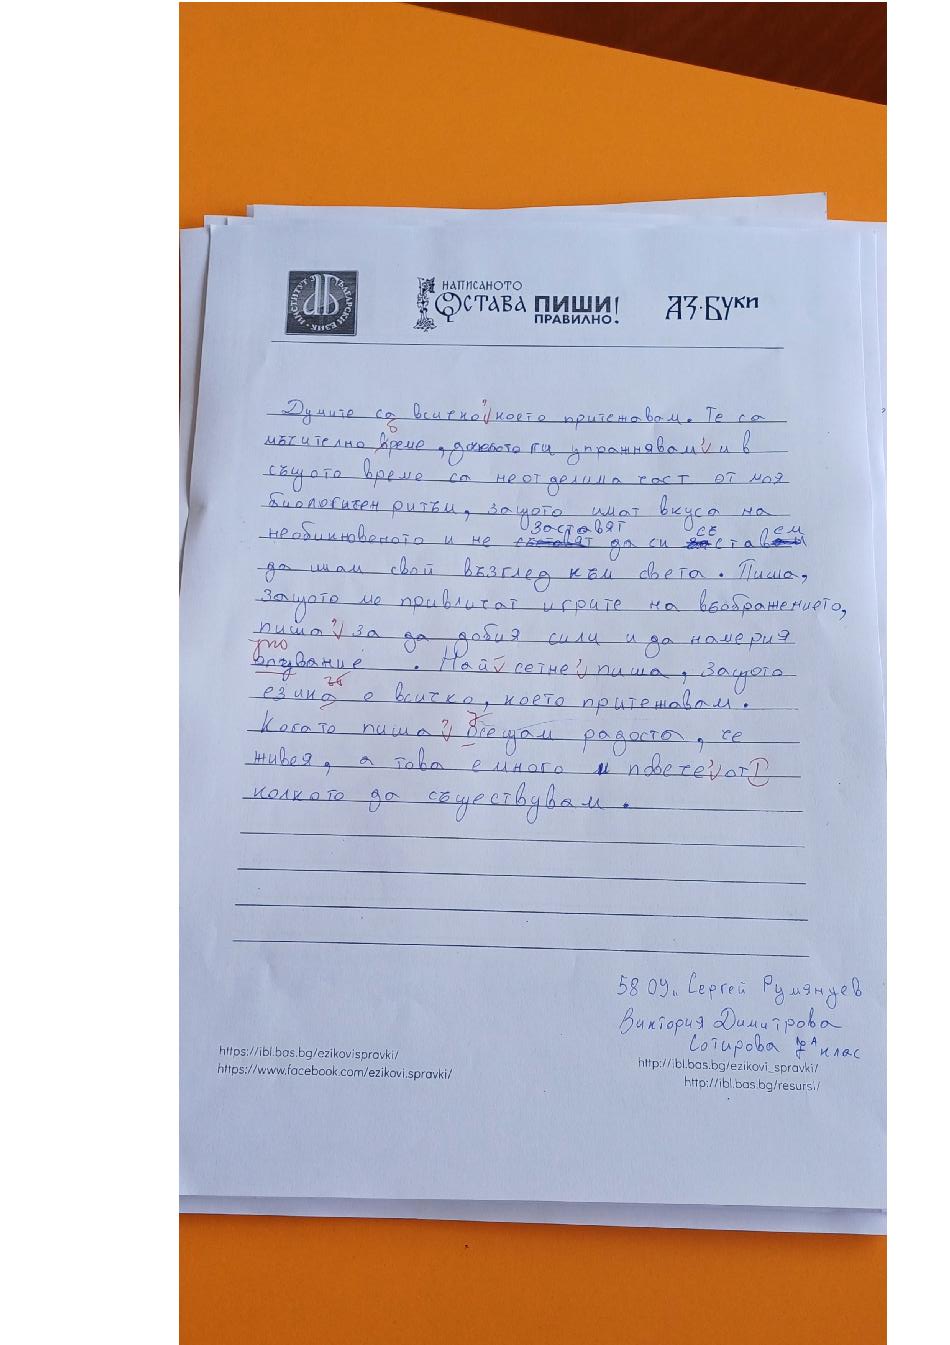 ИНСТИТУТ ЗА БЪЛГАРСКИ ЕЗИК
НАПИСАНОТО
ОСТАВА ПИШИ
ПРАВИЛНО!
АЗ·БУКИ
Думите са всичко, което притежавам. Те са
мъчително време, докато ги упражнявам, и в
същото време са неотделима част от моя
биологичен ритъм, защото имат вкуса на
заставят съ ем
необикновеното и не да си став
да имам свой възглед към света. Пиша,
защото ме привличат игрите на въображението,
пиша, за да добия сили и да намеря
упо
вание. Най сетне, пиша, защото
език е всичко, което притежавам.
Когато пиша, усещам радостта, че
живея, а това е много повече, от
колкото да съществувам.
58 ОУ „Сергей Румянцев
Виктория Димитрова
Сотирова 7 А клас
https://ibl.bas.bg/ezikovispravki/
https://www.facebook.com/ezikovi.spravki/
http://ibl.bas.bg/ezikovi_spravki/
http://ibl.bas.bg/resursi/